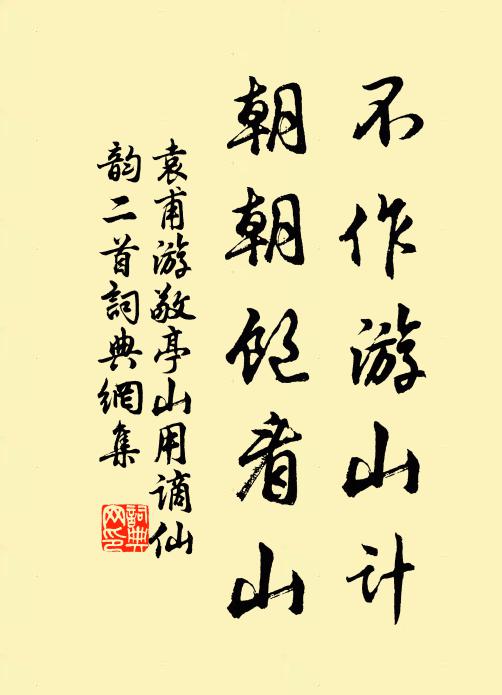 不作游山计
朝朝饱看山
袁甫游敬亭山用谪仙
韵二首詞典網集
詞典网印